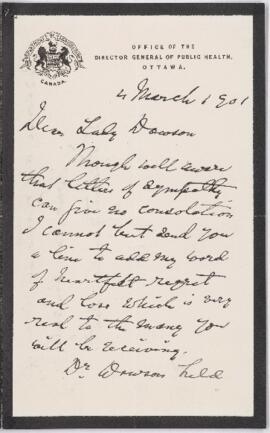 OFFICE OF THE
DIRECTOR GENERAL OF PUBLIC HEALTH,
OTTAWA.
CANADA.
4 March 1901
Dear Lady Dawson
Though well aware
that letters of sympathy
can give no consolation
I cannot but send you
a line to add my word
of heartfelt regret
and loss which is very
real to the many you
will be receiving.
Dr Dawson held